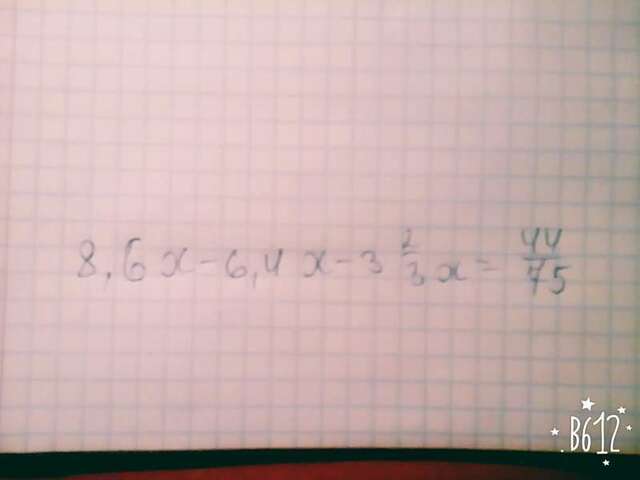 8,6x-6,4x-3 2/3 x= 44/75
B612